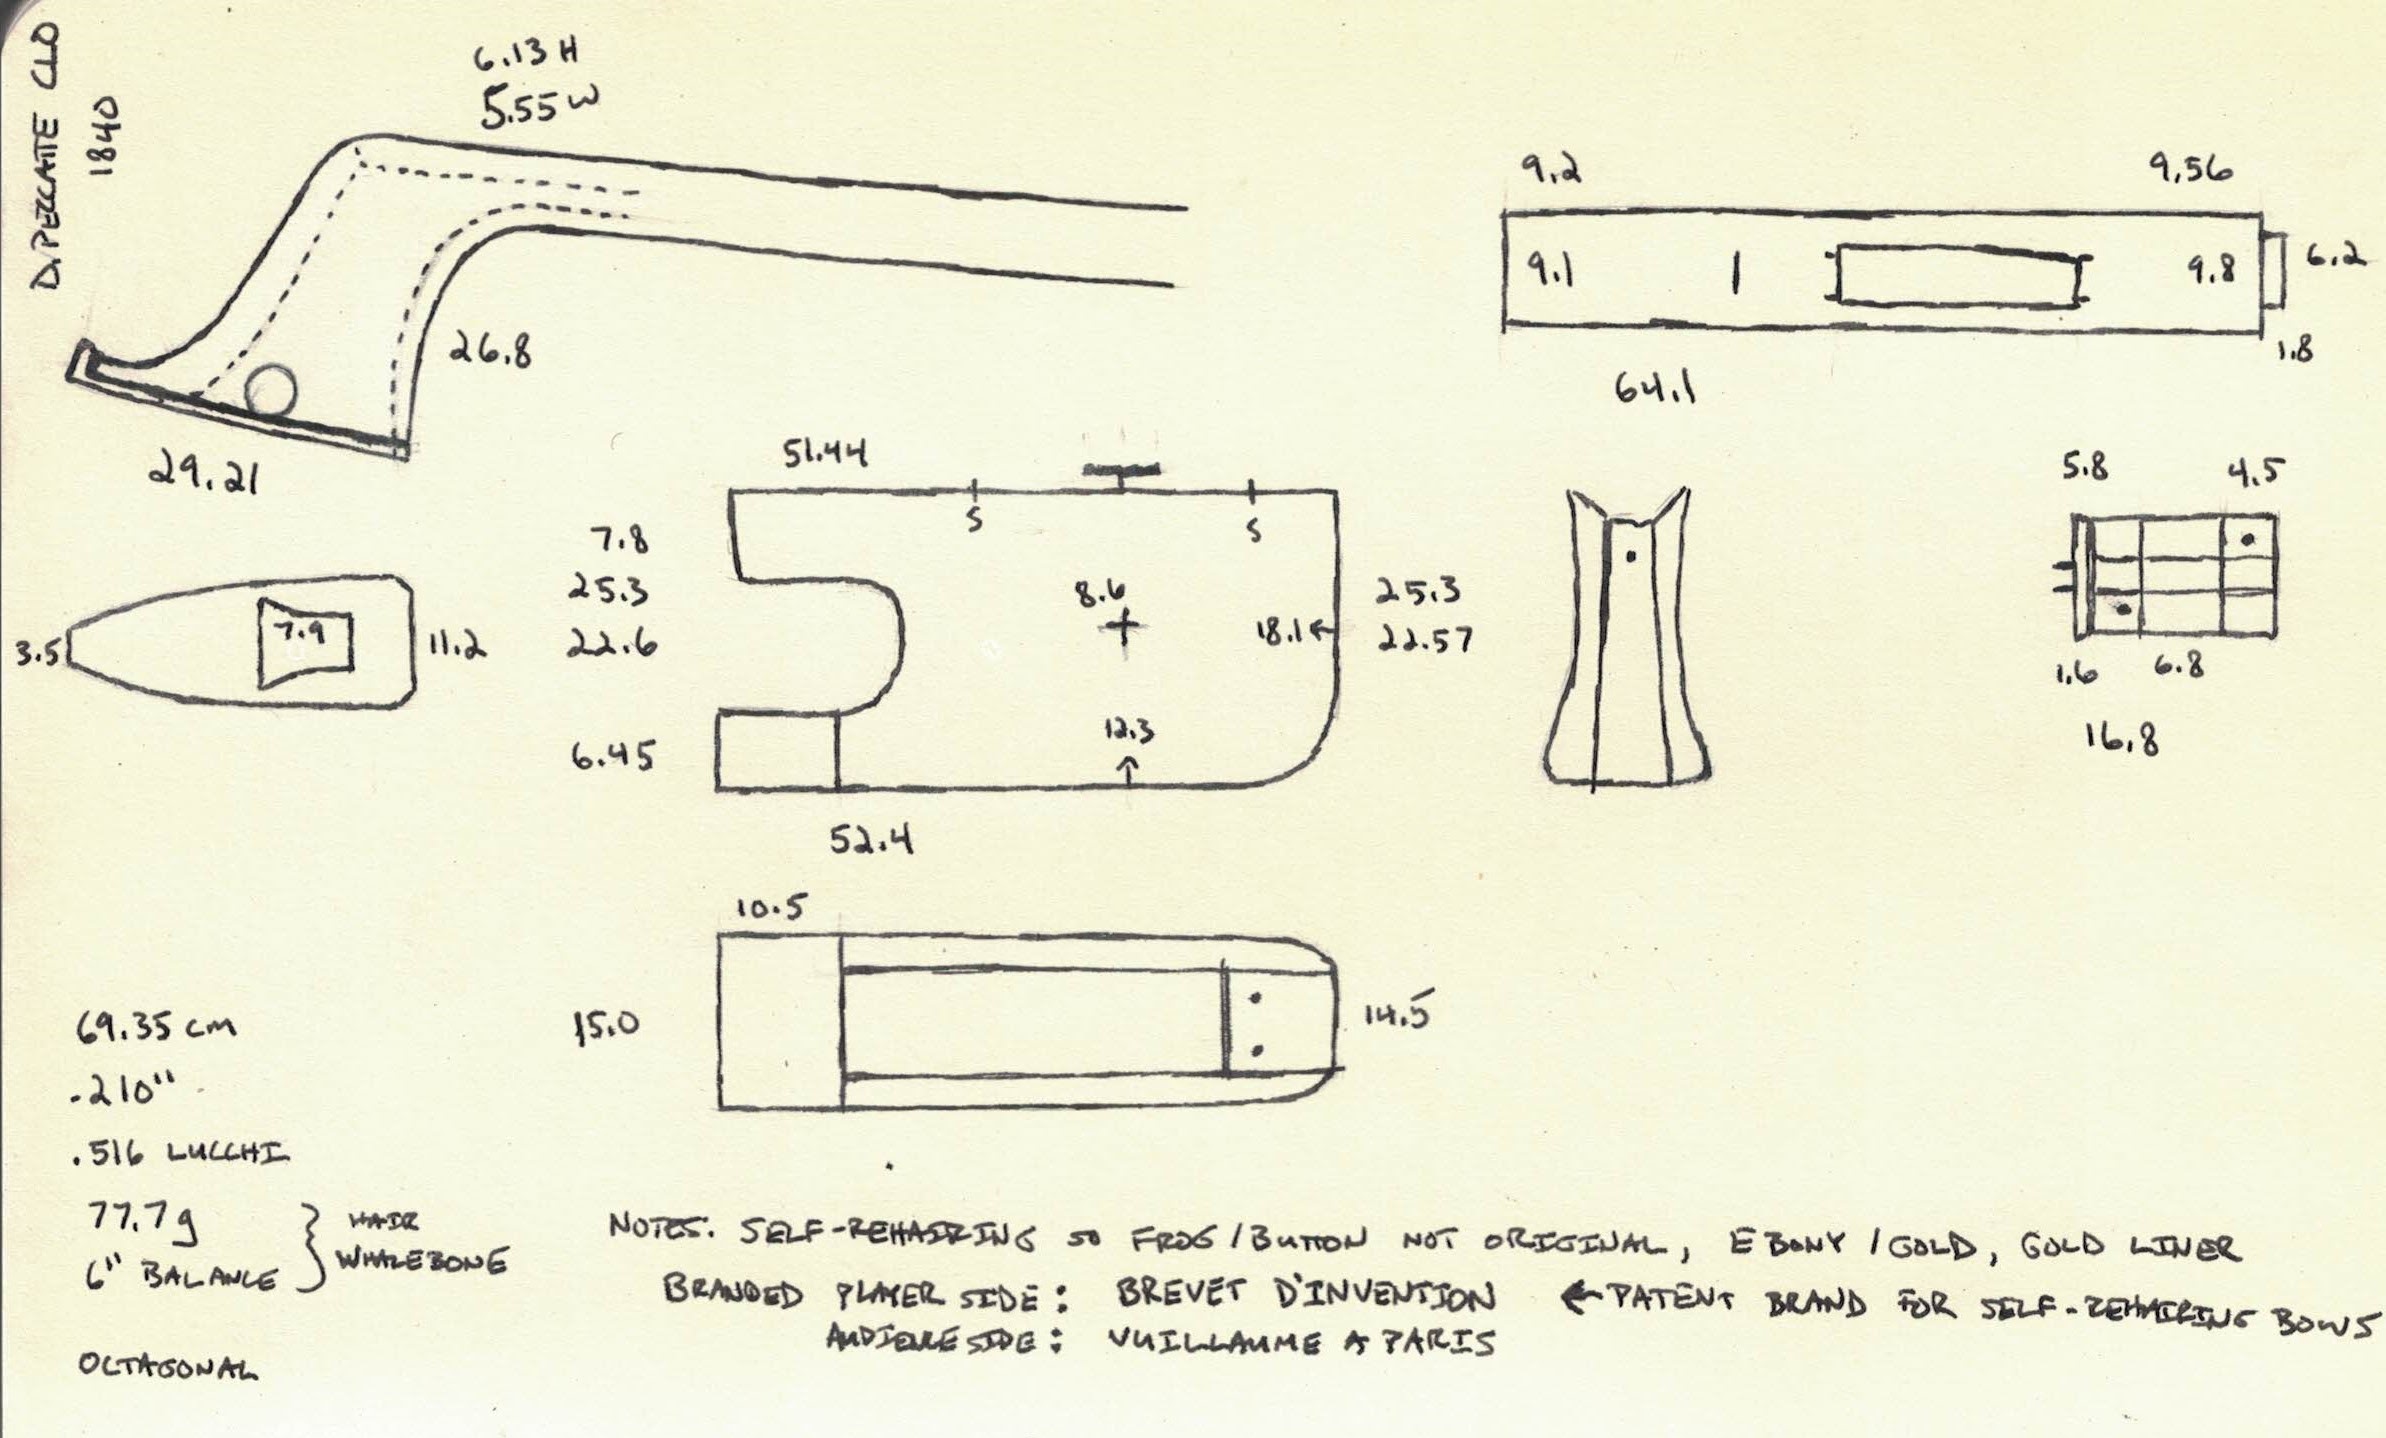 D. PECCATTE CLO
1840
6.13 H
5.55 W
26.8
29.21
9.2
9.56
9.1
9.8
6.2
1.8
64.1
3.5
7.9
11.2
51.44
S
S
7.8
25.3
22.6
6.45
8.6
18.1
12.3
25.3
22.57
52.4
5.8
4.5
1.6
6.8
16.8
10.5
15.0
14.5
69.35 cm
.210"
.516 LUCCHI
77.7g
6" BALANCE
HAIR
WHALEBONE
OCTAGONAL
NOTES: SELF-REHAIRING SO FROG/BUTTON NOT ORIGINAL, EBONY/GOLD, GOLD LINER
BRANDED PLAYER SIDE: BREVET D'INVENTION ← PATENT BRAND FOR SELF-REHAIRING BOWS
AUDIENCE SIDE: VUILLAUME A PARIS